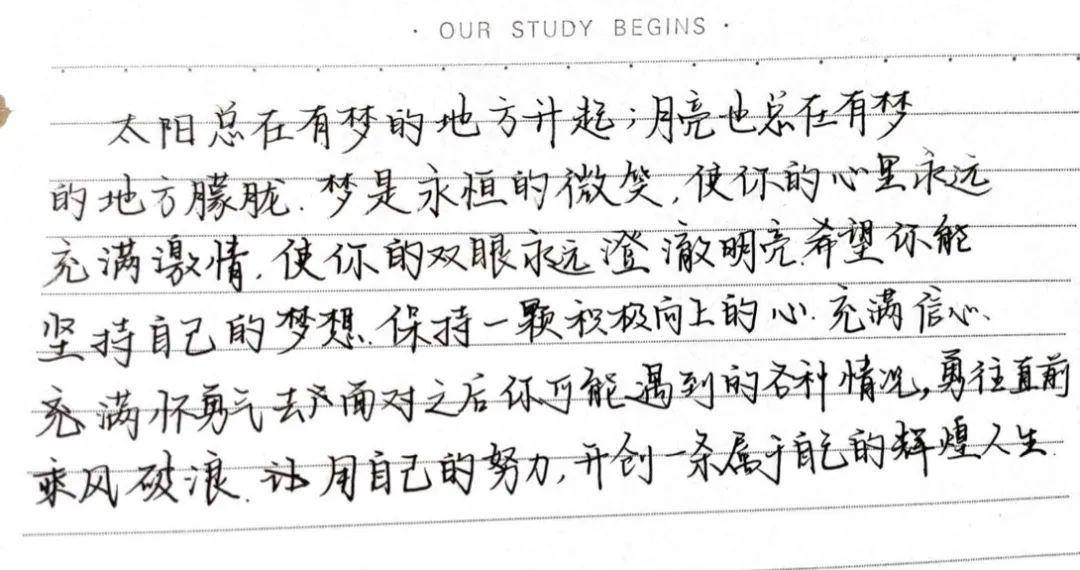 · OUR STUDY BEGINS ·
太阳总在有梦的地方计起;月亮也总在有梦
的地方朦胧.梦是永恒的微笑,使你的心里永远
充满激情,使你的双眼永远澄澈明亮.希望你能
坚持自己的梦想.保持一颗积极向上的心.充满信心、
充满怀勇气去面对之后你可能遇到的各种情况,勇往直前
乘风破浪.让用自己的努力,开创一条属于自己的辉煌人生.